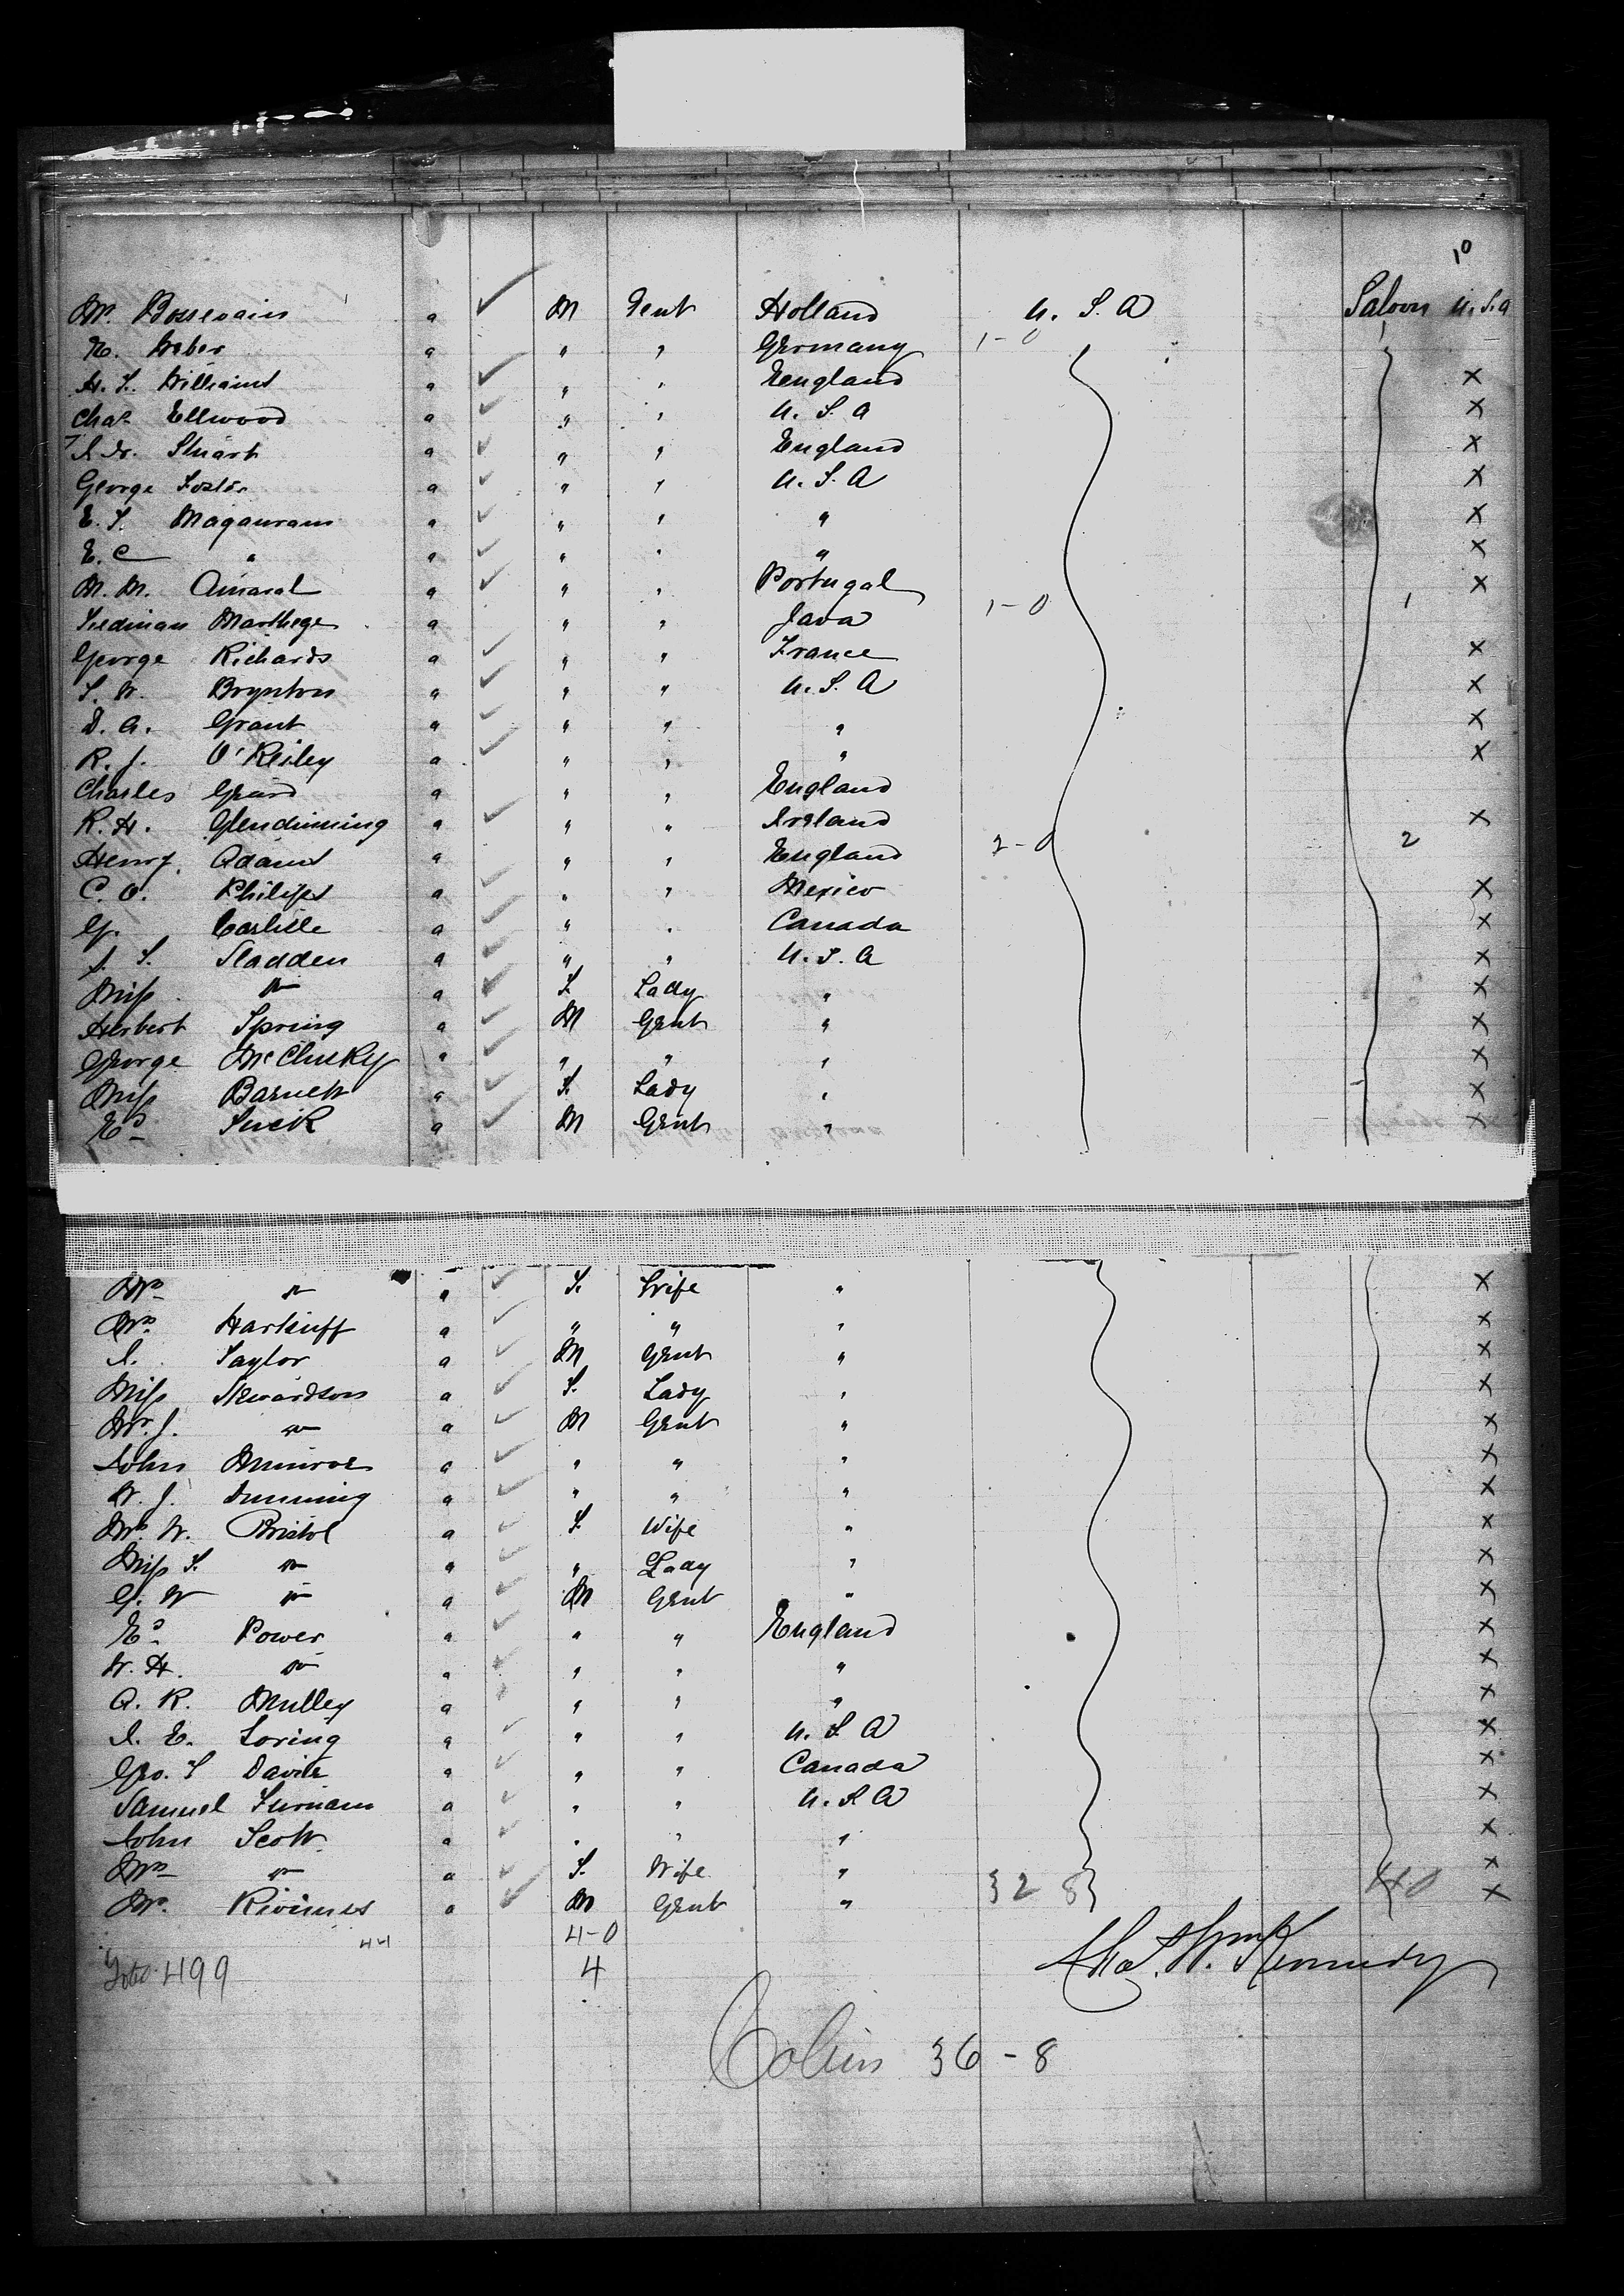 10
Mr. Bossevain a M Gent Holland U. S. A Saloon U. S. A
E. Weber a " " Germany 1-0 1
H. S. Williams a " " England x
Chas Ellwood a " " U. S. A x
Stuart a " " England x
George Foster a " " U. S. A x
E. S. Magauran a " " " x
E. C " a " " " x
M. M. Amaral a " " Portugal x
Marthege a " " Java 1-0 1
George Richards a " " France x
S. W. Boynton a " " U. S. A x
D. A. Grant a " " " x
R. J. O'Reiley a " " " x
Charles a " " England
R. H. Glendinning a " " Ireland x
Henry Adams a " " England 2-0 2
C. O. Philips a " " Mexico x
G. Carlisle a " " Canada x
J. S. Sladden a " " U. S. A x
Miss do a F. Lady " x
Herbert Spring a M Gent " x
George McClusky a " " " x
Miss Barnett a F. Lady " x
Ed a M Gent " x
Mrs do a F. Wife " x
Mrs a " " " x
J. Taylor a M Gent " x
Miss Stewardson a F. Lady " x
Mr. J. do a M Gent " x
John Munroe a " " " x
W. J. Dunning a " " " x
Mrs W. Bristol a F. Wife " x
Miss S. do a " Lady " x
G. W do a M Gent " x
Ed Power a " " England x
W. H. do a " " " x
A. R. Mulley a " " " x
J. E. Loring a " " U. S. A x
Geo. S Davis a " " Canada x
Samuel Furnam a " " U. S. A x
John Scott a " " " x
Mrs do a F. Wife " x
Mr. a M Gent " 32 8 40 x
44 4-0
499 4
W. Kennedy
36 - 8